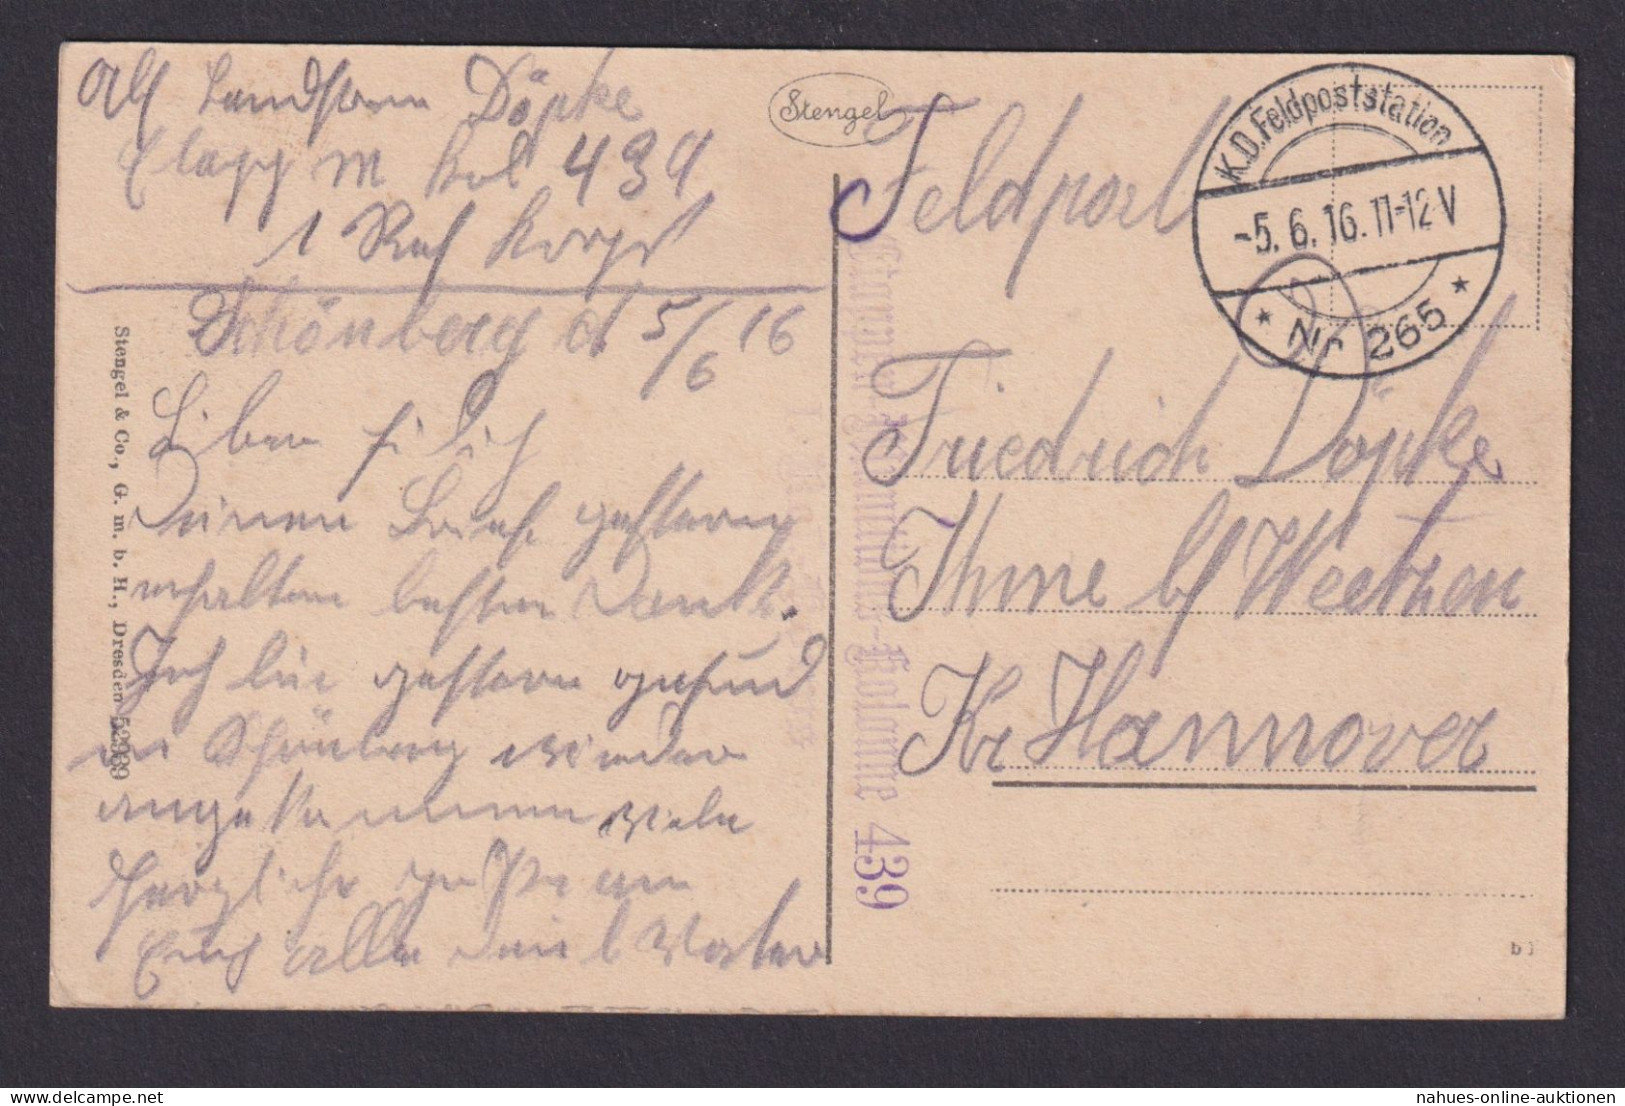 Abs Landstrm Döpke
Etapp M Kol 439
1 Res Korps
Schönberg d 5/6 16
Liben
Deinen Brief gestern
erhalten besten Dank.
Ich bin gestern gesund
in Schönberg wieder
angekommen viele
Herzliche Grüße an
Euch alle dein l Vater
Stengel & Co., G. m. b. H., Dresden 52939
Stengel
Feldpost
K.D.Feldpoststation
-5.6.16.11-12V
* Nr. 265 *
Friedrich Döpke
Ihme b/ Weetzen
Kr Hannover
Etappen-Munitions-Kolonne 439
b 1
nahues-online-auktionen.com